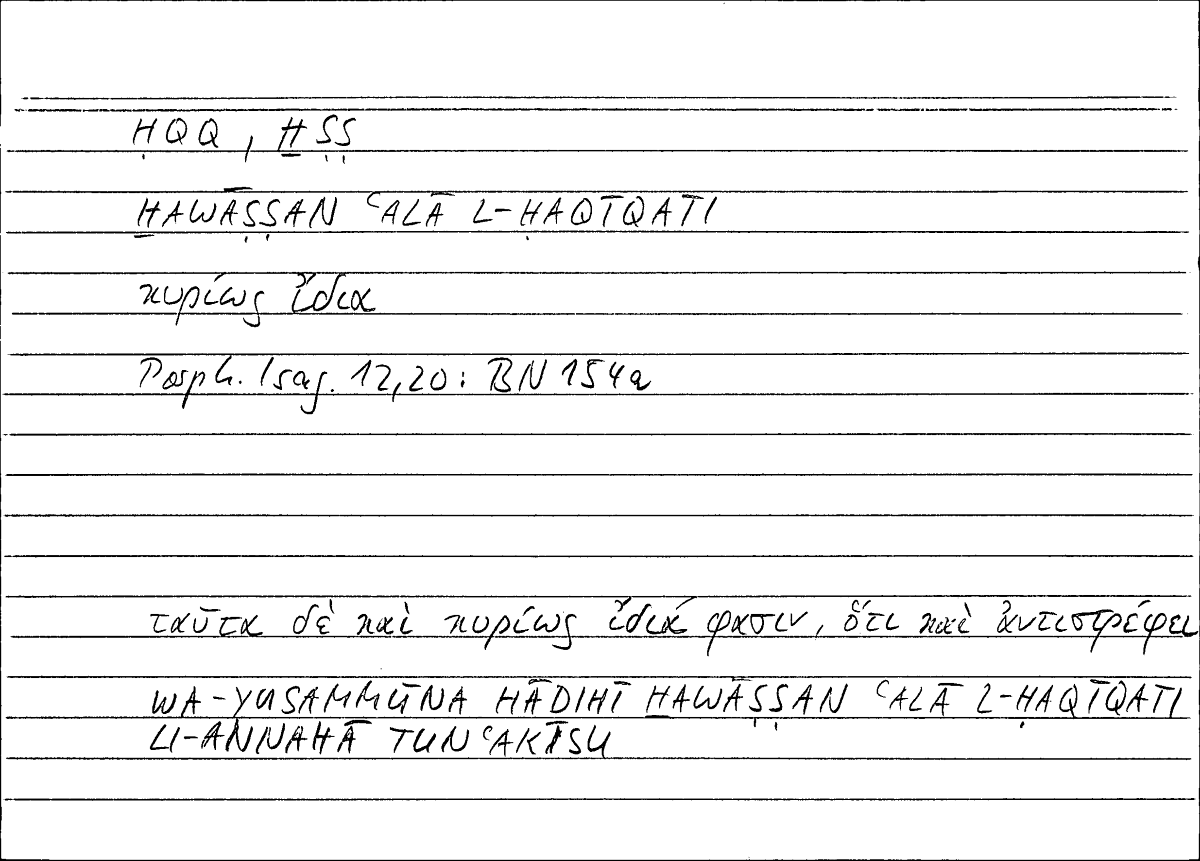 ḤQQ, ḪṢṢ
ḪAWĀṢṢAN ʿALĀ L-ḤAQĪQATI
κυρίως ἴδια
Porph. Isag. 12,20: BN 154a
ταῦτα δὲ καὶ κυρίως ἴδιά φασιν, ὅτι καὶ ἀντιστρέφει
WA-YUSAMMŪNA HĀDIHĪ ḪAWĀṢṢAN ʿALĀ L-ḤAQĪQATI
LI-ANNAHĀ TUNʿAKĪSU